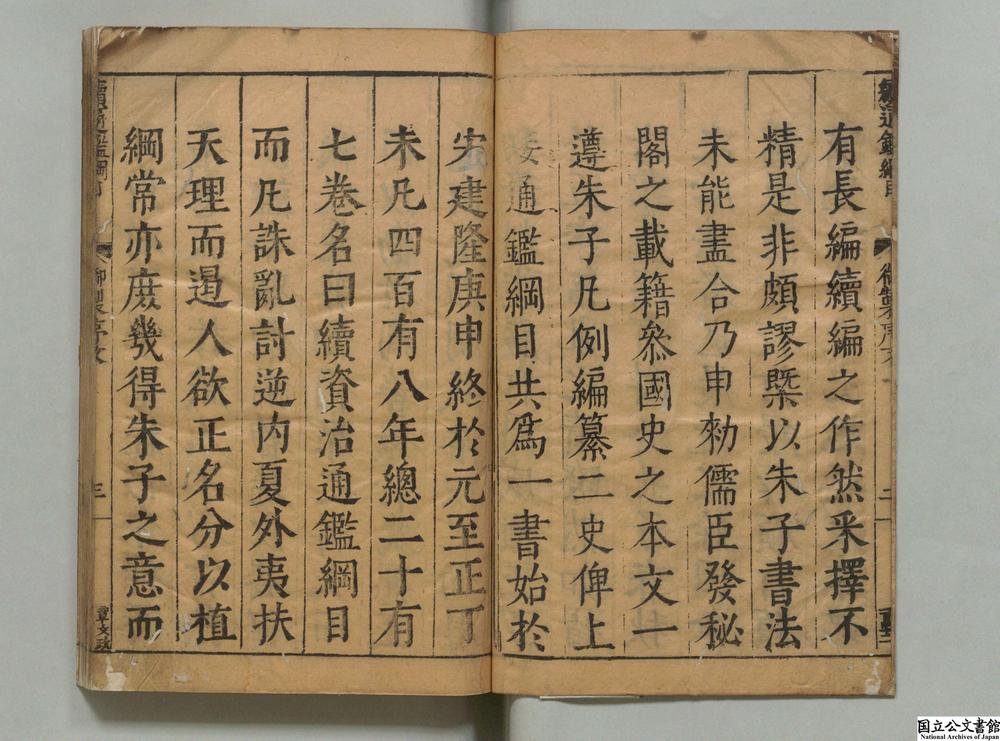 有長編續編之作然采擇不
精是非頗謬槩以朱子書法
未能盡合乃申勑儒臣發秘
閣之載籍叅國史之本文一
遵朱子凡例編纂二史俾上
接通鑑綱目共爲一書始於
宋建隆庚申終於元至正丁
未凡四百有八年總二十有
七卷名曰續資治通鑑綱目
而凡誅亂討逆内夏外夷扶
天理而遏人欲正名分以植
綱常亦庶幾得朱子之意而
續通鑑綱目
御製序文
二
續通鑑綱目
御製序文
三
国立公文書館
National Archives of Japan